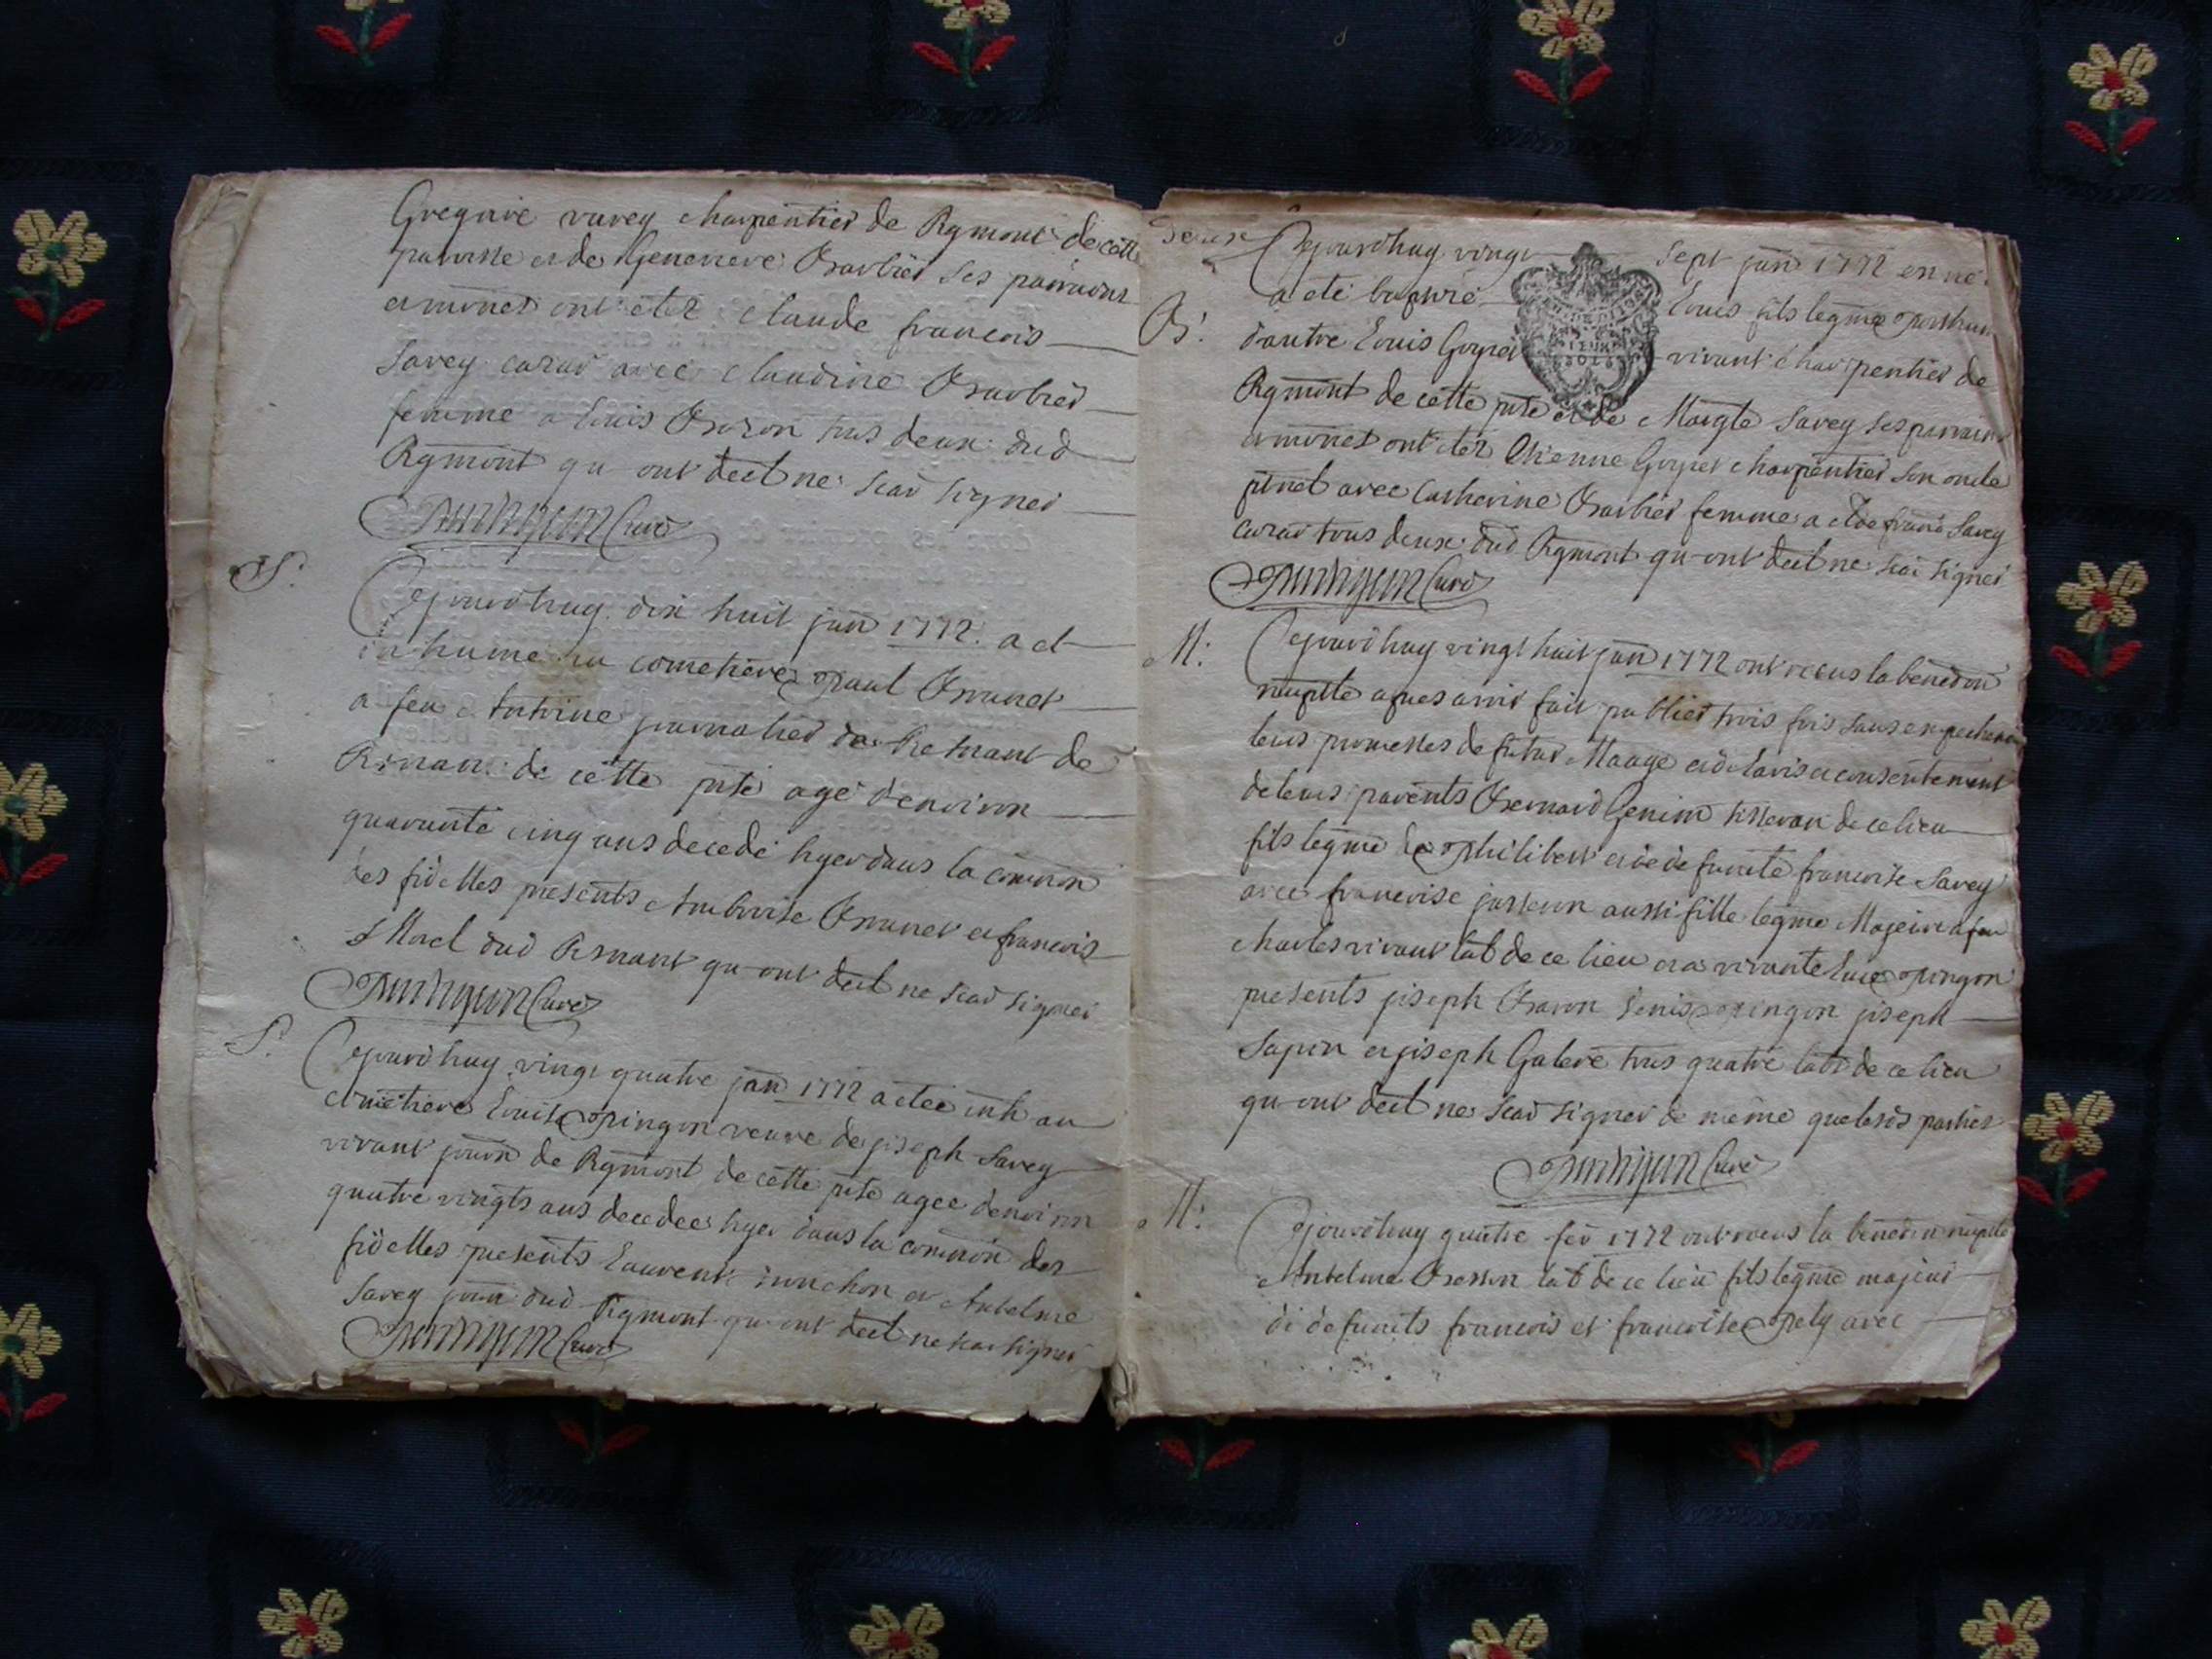 Gregoire varey charpentier de Rgmont de cette
paroisse et de Genevieve Barbier ses parrains
et mones ont eter claude francois
Savey curat avec claudine Barbier
femme a louis Boron tous deux dud
Rgmont qu ont decl ne scav signer
Curé
S:
Cejourd'huy dix huit jan 1772 a et
inhume au cometiere paul Brunet
a feu Antoine journalier de
de cette pste agé d'environ
quarante cinq ans decedé hyer dans la comion
des fidelles presents Ambroise Brunet et francois
Morel dud qu ont decl ne scav signer
Curé
S:
Cejourd'huy vingt quatre jan 1772 a etee inh au
cimetiere Louise pingon veuve de joseph Savey
vivant journ de Rgmont de cette pste agee denviron
quatre vingts ans decedee hyer dans la comion des
fidelles presents Laurent et Antelme
Savey journ dud Rgmont qu ont decl ne scav signer
Curé
deux Cejourd'huy vingt sept jan 1772 en né
a eté baptisé Louis fils legme posthum
B:
d'autre Louis Goyret vivant charpentier de
Rgmont de cette pste et de Margte Savey ses parrains
et mones ont eter Etienne Goyret charpentier son oncle
avec Catherine Barbier femme a clde franc Savey
curat tous deux dud Rgmont qu ont decl ne scai signer
Curé
M:
Cejourd'huy vingt huit jan 1772 ont receus la benedon
nuptle apres avoir fait publier trois fois sans empechem
leurs promesses de futur Maage et de l'avis et consentement
de leurs parents Bernard Genin tisseran de ce lieu
fils legme de philibert et de defuncte francoise Savey
avec francoise josseron aussi fille legme Majeure a feu
charles vivant lab de ce lieu et a vivante Luce pingon
presents joseph Baron Denis pingon joseph
Sapin et joseph Galere tous quatre labs de ce lieu
qu ont decl ne scav signer de meme que lesds parties
Curé
M:
Cejourd'huy quatre fev 1772 ont receus la benedon nuptle
Antelme Besson lab de ce lieu fils legme majeur
de defuncts francois et francoise pely avec